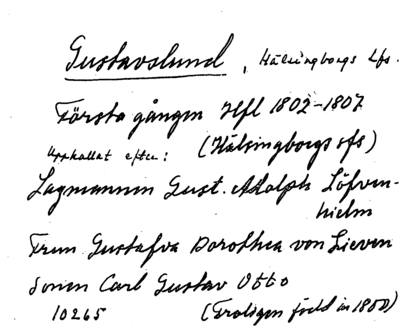 Gustavslund, Hälsingborgs lfs.
Första gången Hfl 1802-1807
Uppkallat efter: (Hälsingborgs sfs)
Lagmannen Gust. Adolph Löfven-
hielm
Frun Gustafva Dorothea von Lieven
Sonen Carl Gustav Otto
10265 (Troligen född in 1800)